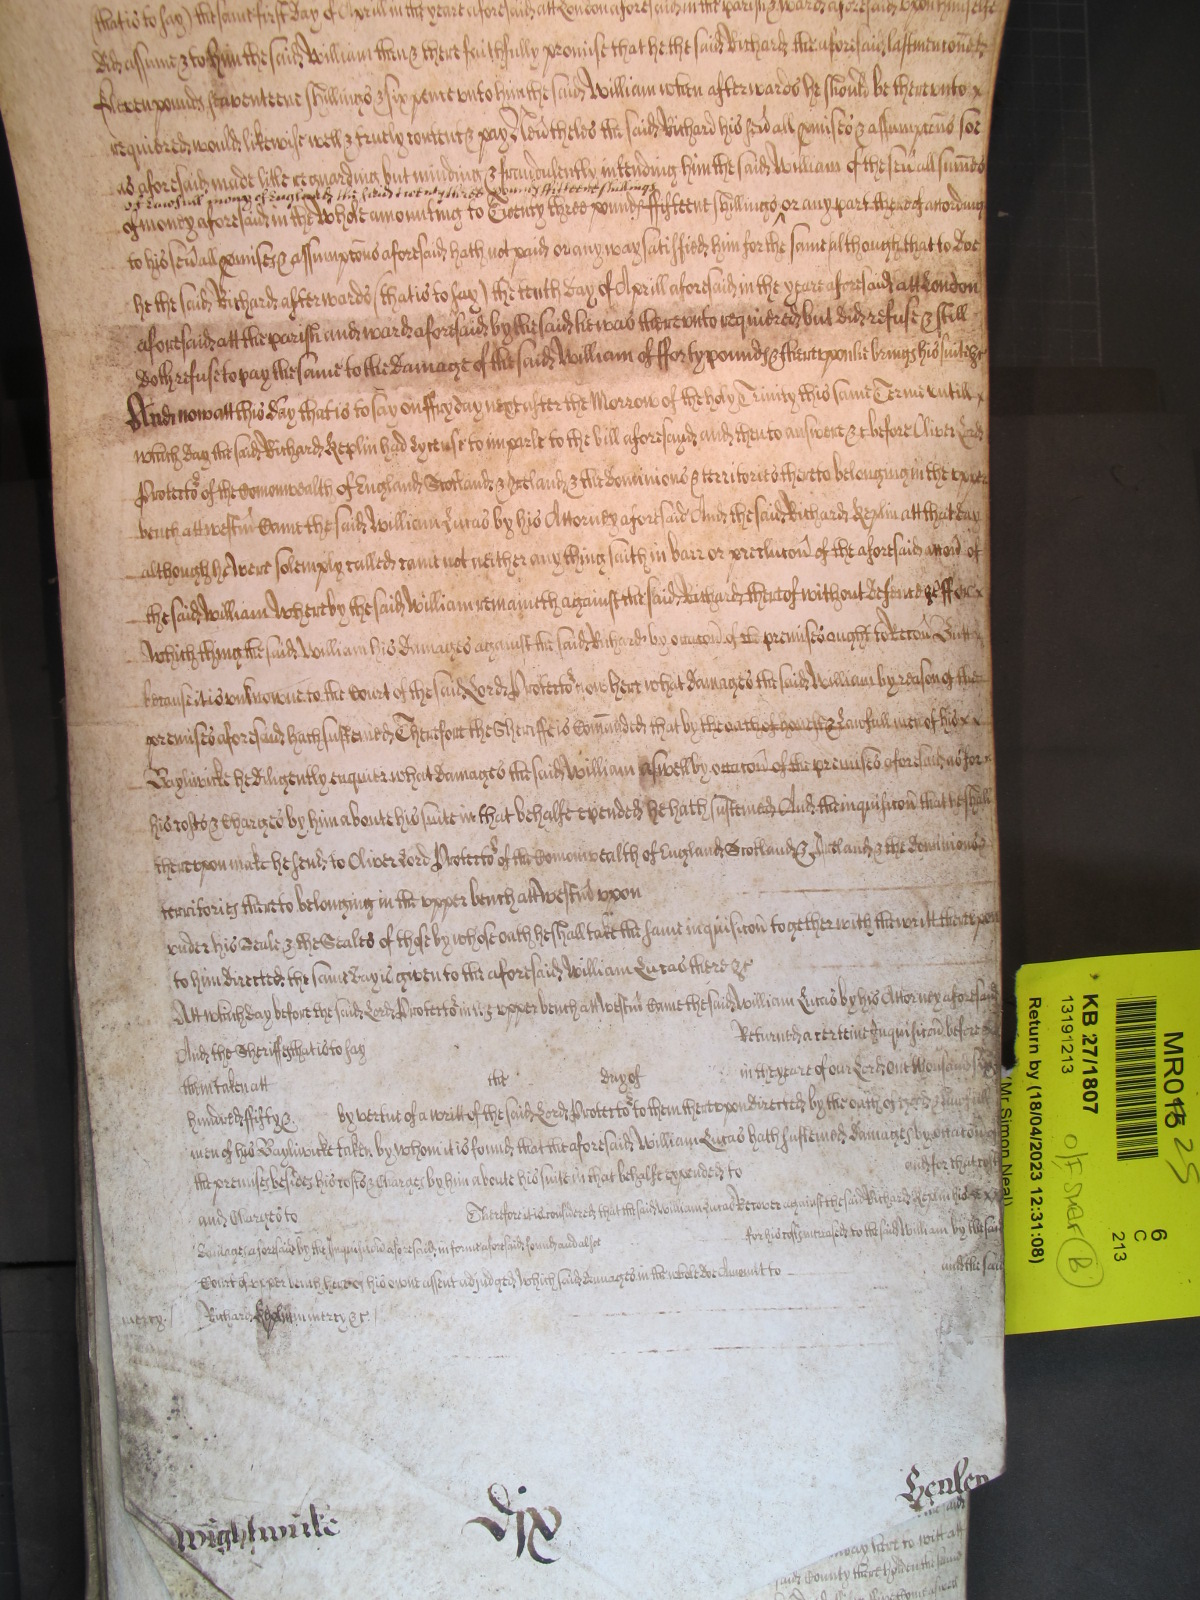 (that is to say) the same first day of Aprill in the yeare aforesaid att London aforesaid in the parish & ward aforesaid upon himselfe
did assume & to him the said William then & there faithfully promise that he the said Richard the aforesaid last mentioned
Eleven pounds seaventeene shillings & six pence unto him the said William when afterwards he should be thereunto
required would likewise well & truely content & pay Nevertheles the said Richard his sevall pmises & assumptons soe
as aforesaid made litle regarding but minding & fraudulently intending him the said William of the sevall summes
of lawfull money of England the said twenty three pounds fifteene shillings
of money aforesaid in the whole amounting to Twenty three pounds ffifteene shillings or any part thereof according
to his sevall pmises & assumptons aforesaid hath not paid or any way satisfied him for the same although that to doe
he the said Richard afterwards (that is to say) the tenth day of Aprill aforesaid in the yeare aforesaid att London
aforesaid att the parish and ward aforesaid by the said he was thereunto required but did refuse & still
doth refuse to pay the same to the damage of the said William of fforty pounds & thereupon he brings his suite &c
And now att this day that is to say on ffryday next after the Morrow of the holy Trinity this same Terme untill
which day the said Richard Keplin had lycense to imparle to the bill aforesaid and then to answere &c before Oliver Lord
Protector of the Comonwealth of England Scotland & Ireland & the Dominions & territories thereto belonging in the upper
bench att Westm Came the said William Lucas by his Attorney aforesaid And the said Richard Keplin att that day
although he were solemply called came not neither any thing saith in barr or preclucon of the aforesaid accon of
the said William Whereby the said William remaineth against the said Richard thereof without defence &c ffor
which thing the said William his damages against the said Richard by occacon of the premises ought to Recov Butt
because it is unknowne to the Court of the said Lord Protector now here what damages the said William by reason of the
premises aforesaid hath susteined Therefore the Sheriffe is Comanded that by the oath of honest & lawfull men of his
Baylywicke he diligently enquier what damages the said William aswell by occacon of the premises aforesaid as for
his costs & charges by him aboute his suite in that behalfe expended he hath susteined And the inquisicon that he shall
thereupon make he send to Oliver Lord Protector of the Comonwealth of England Scotland & Ireland & the dominions
territories thereto belonging in the upper bench att Westm upon
under his Seale & the Seales of those by whose oath he shall take the same inquisicon together with the writt thereupon
to him directed the same day is given to the aforesaid William Lucas there &c
Att which day before the said Lord Protector in the upper bench att Westm Came the said William Lucas by his Attorney aforesaid
And the Sheriffe that is to say Returned a certeine Inquisicon before
them taken att the day of in the yeare of our Lord One thousand six
hundred ffifty & by vertue of a writt of the said Lord Protector to them thereupon directed by the oath of good & lawfull
men of his Baylywicke taken by whom it is found that the aforesaid William Lucas hath susteined damages by occacon of
the premises besides his costs & charges by him aboute his suite in that behalfe expended to and for that cost
and charges to Therefore it is considered that the said William Lucas Recover against the said Richard Keplin his
damages aforesaid by the Inquisicon aforesaid in forme aforesaid found and alsoe for his costs increased to the said William by the said
Court of upper bench here of his owne assent adjudged which said damages in the whole doe Amount to and the said
mercy. Richard Keplin in mercy &c
wightwicke
dix
Henley
said County there holden the same
MR015 25
KB 27/1807
13191213
Return by (18/04/2023 12:31:08)
(Mr Simon Neal)
6
C
213
B